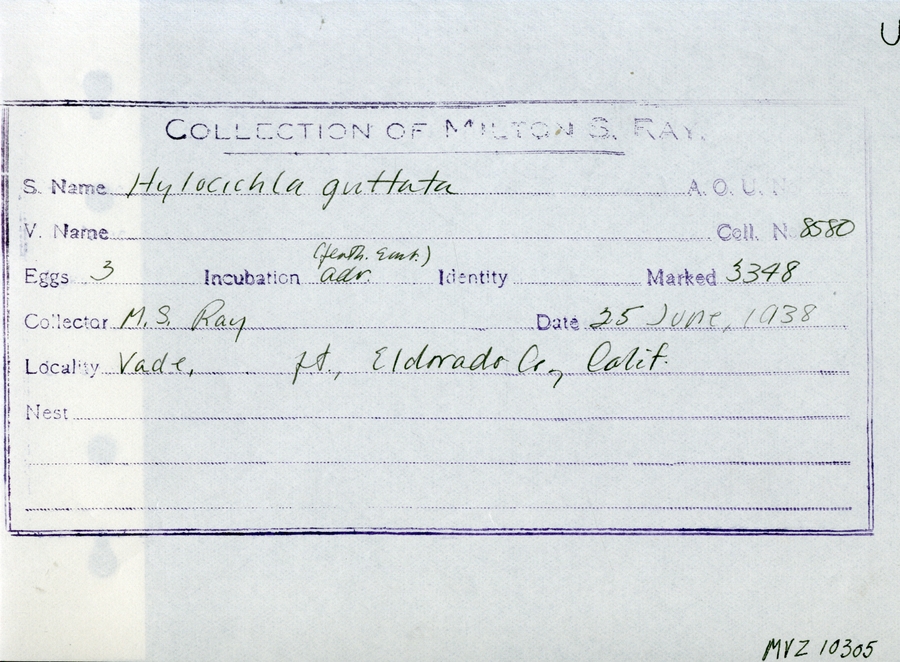 U
COLLECTION OF MILTON S. RAY.
S. Name Hylocichla guttata A. O. U. No
V. Name Coll. N 8580
(feath. emb.)
Eggs 3 Incubation adv. Identity Marked 3348
Collector M. S. Ray Date 25 June, 1938
Locality Vade, ft., Eldorado Co., Calif.
Nest
MVZ 10305